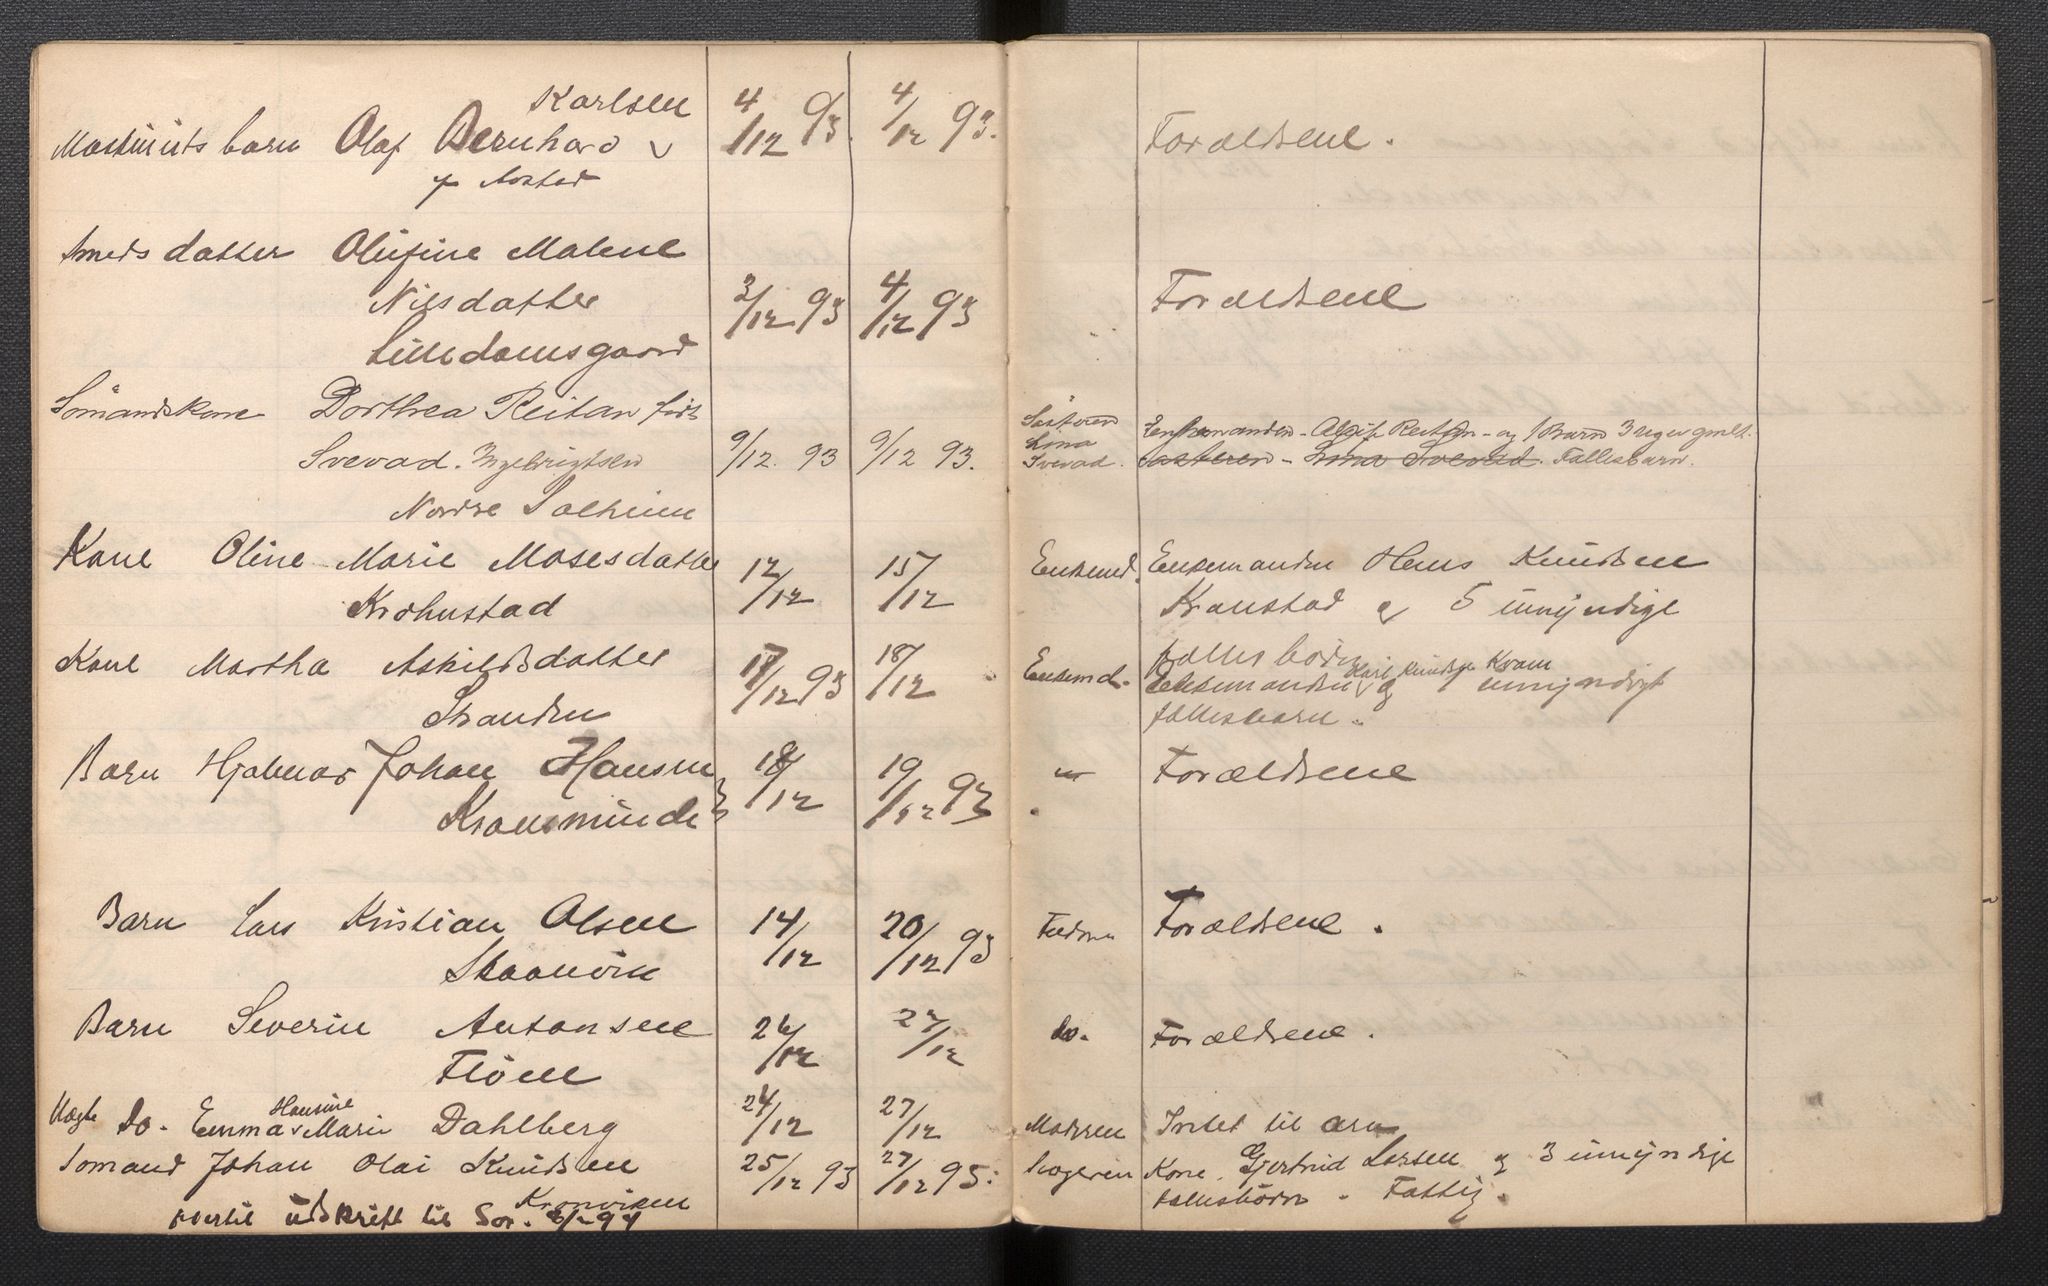 Karlsen
Maskinists barn Olaf Bernhard v 4/12 93. 4/12 93. Forældrene.
Smeds datter Olufine Malene
Nilsdatter 3/12 93 4/12 93 Forældrene
Lilledamsgaard
Sömandskone Dorthea Reitan född Søsteren Enkemanden - Reitan - og 1 Barn 3 uger gmlt.
Svevad. Ingebrigtsen 9/12. 93 9/12 93. Lina Svevad. Søsteren - Lina Svevad. Fællesbarn.
Nordre Solheim
Kone Oline Marie Mosesdatter 12/12 15/12 Enkemd. Enkemanden Hans Knudsen
Krohnstad Kronstad og 5 umyndige
fælles börn
Kone Martha Askildsdatter 17/12 93 18/12 Enkemd. Enkemanden v Karl Knudsen Kvam og 1 umyndigt
Stranden fællesbarn.
Barn Hjalmar Johan Hansen 18/12 19/12 93 Forældrene
Kronsminde
Barn Lars Kristian Olsen 14/12 20/12 93 Faderen Forældrene.
Skaanvik
Barn Severin Antonsen 26/12 27/12 do. Forældrene.
Flöen
Uægte do. Emma v Hansine Marie Dahlberg 24/12 27/12 Moderen Intet til arv
Sömand Johan Olai Knudsen 25/12 93 27/12 93. Svogeren Kone Gjertrud Larsen og 3 umyndige
Kronviken fællesbörn. Fattig.
udskrift til Sor. 94